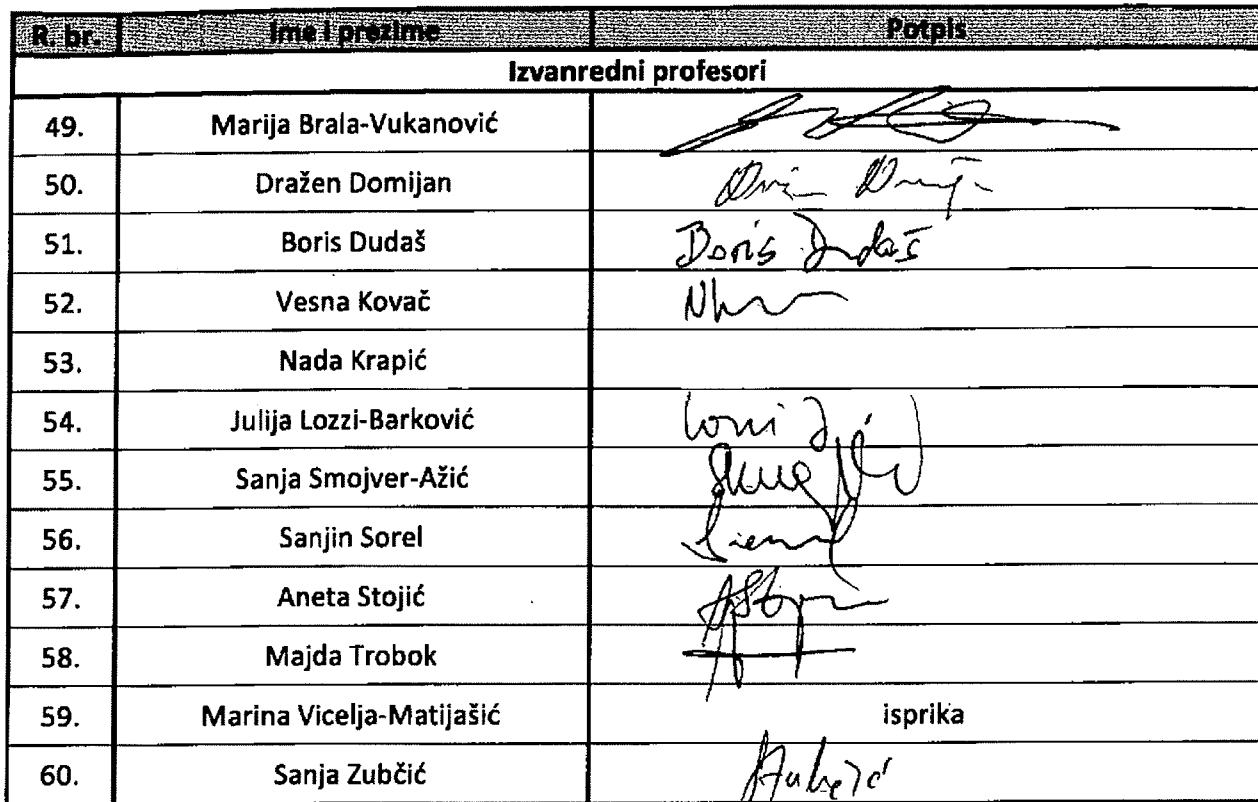 R. br. Ime i prezime Potpis
Izvanredni profesori
49. Marija Brala-Vukanović
50. Dražen Domijan
51. Boris Dudaš Boris Dudaš
52. Vesna Kovač
53. Nada Krapić
54. Julija Lozzi-Barković
55. Sanja Smojver-Ažić
56. Sanjin Sorel
57. Aneta Stojić
58. Majda Trobok
59. Marina Vicelja-Matijašić isprika
60. Sanja Zubčić